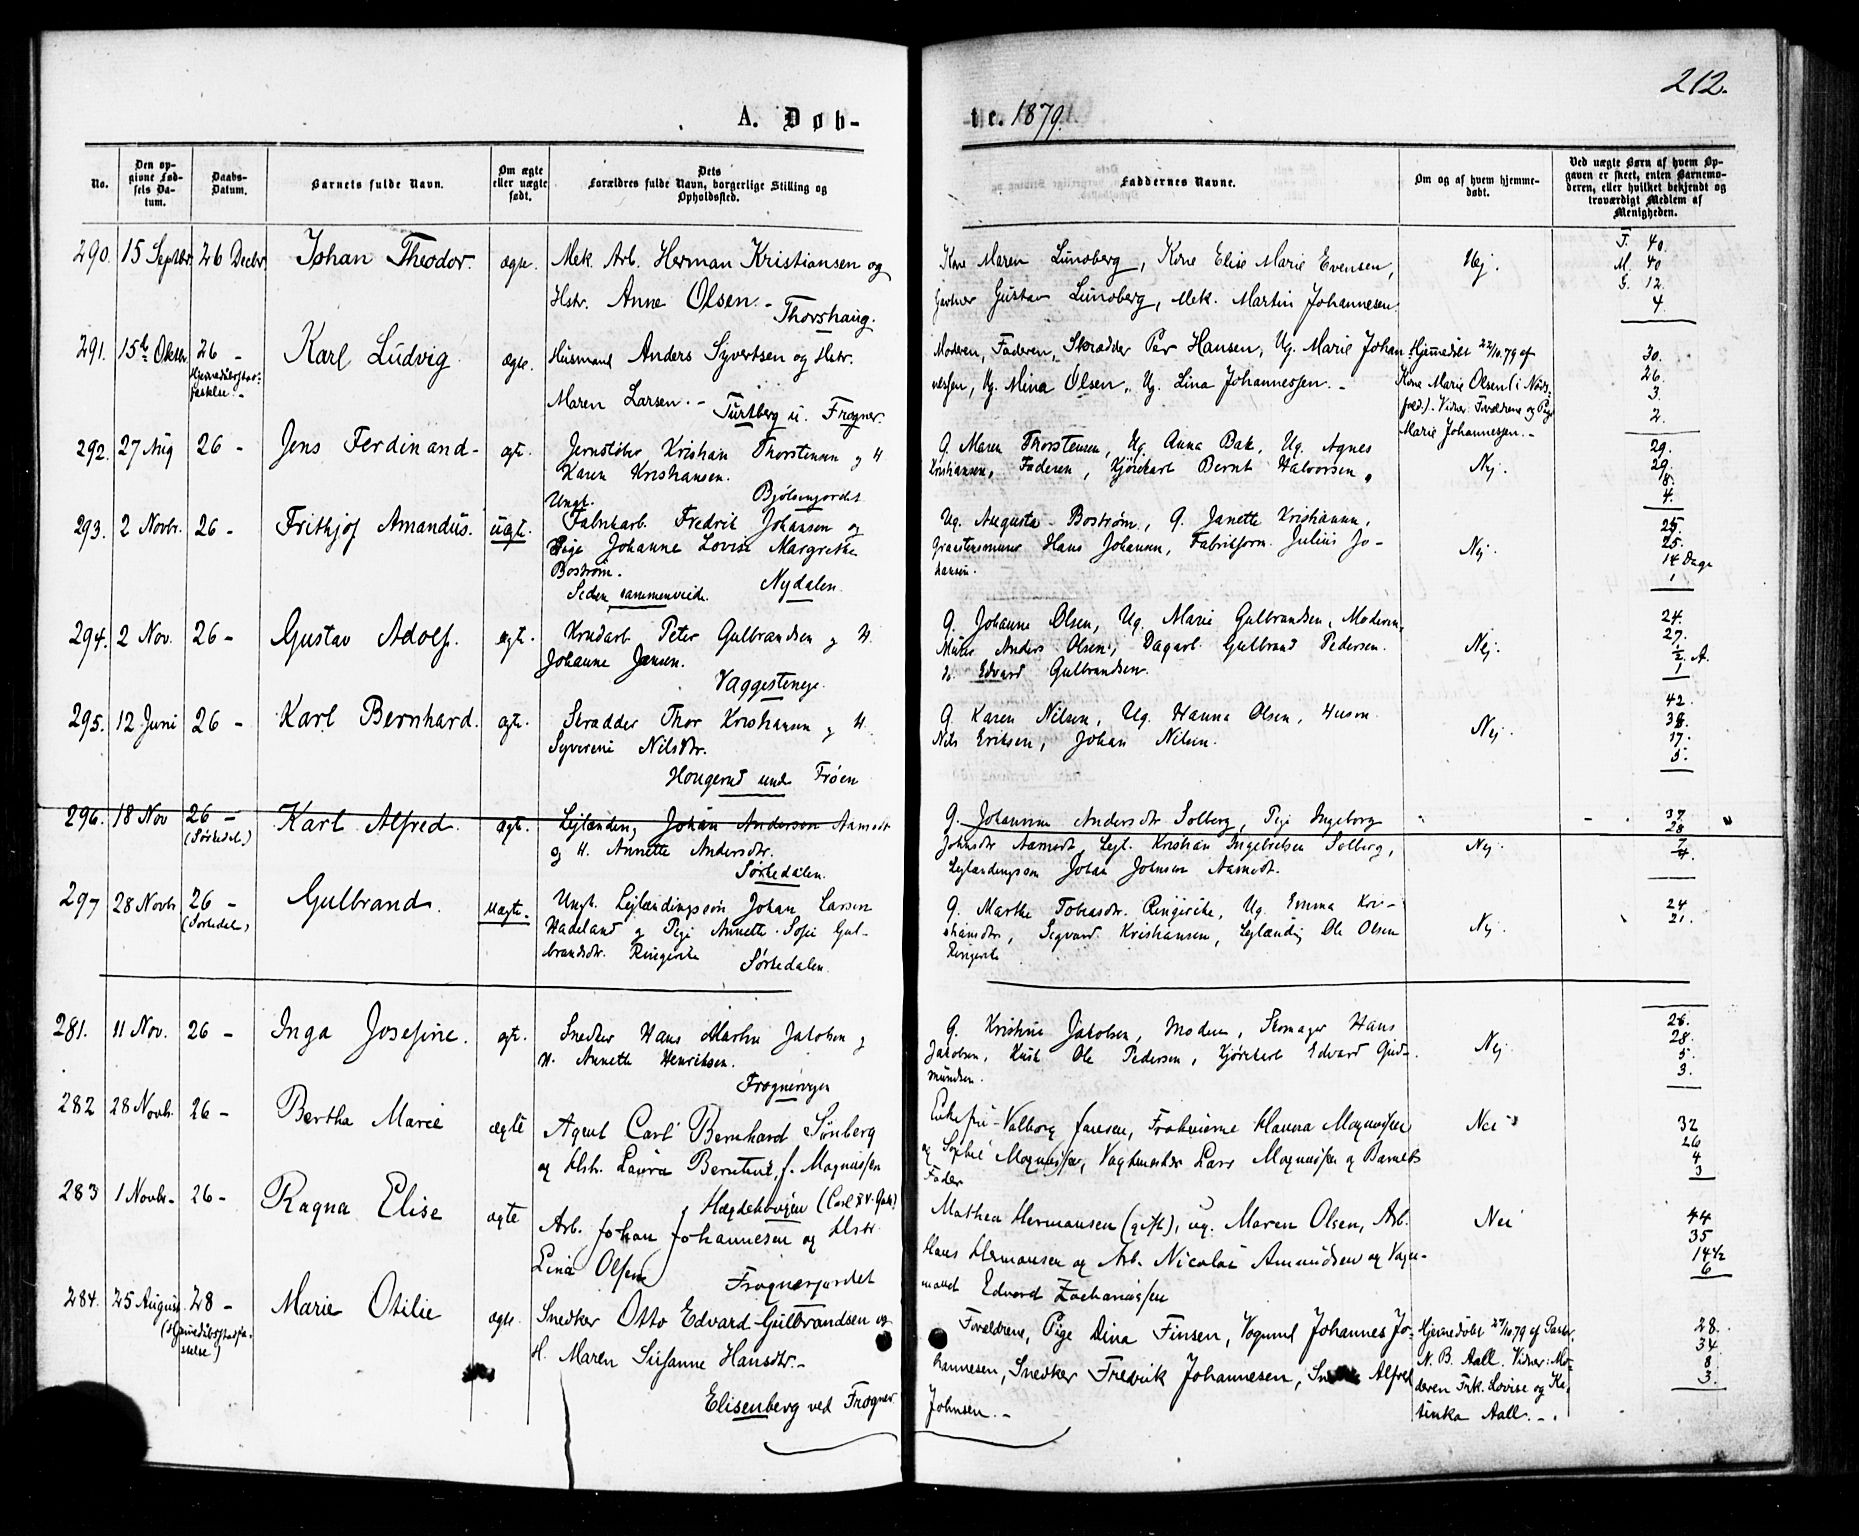 212.
A. Døb-
te. 1879.
No.
Den op-
givne Fød-
sels Da-
tum.
Daabs-
Datum.
Barnets fulde Navn.
Om ægte
eller uægte
født.
Dets
Forældres fulde Navn, borgerlige Stilling og
Opholdssted.
Faddernes Navne.
Om og af hvem hjemme-
døbt.
Ved uægte Børn af hvem Op-
gaven er skeet, enten Barnemo-
deren, eller hvilket bekjendt og
troværdigt Medlem af
Menigheden.
290. 15 Septbr 26 Decbr Johan Theodor. ægte. Mek. Arb. Herman Kristiansen og
Hstr. Anne Olsen. -
Thorshaug.
Kone Maren Lundberg, Kone Elise Marie Evensen,
Gartner Gustav Lundberg, Mek. Martin Johannesen
Nej.
F. 40.
M. 40
G. 12.
4.
291. 15de Oktbr 26 - Karl Ludvig ægte. Husmand Anders Syvertsen og Hstr.
Hjemmedøbsstad-
fæstelse. -
Maren Larsen. -
Turtberg u. Frogner.
Moderen, Faderen, Skrædder Per Hansen, Ug. Marie Johan-
nessen, Ug. Mina Olsen, Ug. Lina Johannessen. -
Hjemmedøbt 22/10.79 af
Kone Marie Olsen (i Nøds-
fald). Vidner: Forældrene og Pige
Marie Johannessen. -
30.
26.
3.
2.
292. 27 Aug 26 - Jens Ferdinand - ægt. Jernstøber Kristian Thorstensen og H
Karen Kristiansen.
Bjølsenjordet
G. Maren Thorstensen, Ug. Anna Bak, Ug. Agnes
Kristiansen, Faderen, Kjørekarl Bernt Halvorsen
Nej.
29.
29.
8.
4.
293. 2 Novbr. 26 - Frithjof Amandus. uægte. Ungk.
Fabrikarb. Fredrik Johansen og
Pige Johanne Lovise Margrethe
Bostrøm.
Siden sammenviede. Nydalen.
Ug. Augusta Bostrøm, G. Janette Kristianne,
Hans Johansen, Fabrikform. Julius Jo-
hansen.
Nej.
25.
25.
14 Dage
1
294. 2 Nov. 26 - Gustav Adolf. ægt. Peter Gulbrandsen og H.
Johanne Jansen.
Vaggesteneje.
G. Johanne Olsen, Ug. Marie Gulbrandsen, Moderen,
Murer Anders Olsen, Dagarb. Gulbrand Pedersen.
Edvard Gulbrandsen.
Nej.
24.
27.
1/2 A.
1
295. 12 Juni 26 - Karl Bernhard. ægt. Skrædder Thor Kristiansen og H.
Syverine Nilsdtr.
Hougerud under Frøen
G. Karen Nilsen, Ug. Hanna Olsen, Husm.
Nils Eriksen, Johan Nilsen.
Nej.
42.
17.
5.
296. 18 Nov 26 - Karl Alfred. ægt. Lejlænding Johan Andersen Aamodt
(Sørkedal.)
og H. Annette Andersdtr.
Sørkedalen.
G. Johanne Andersdtr Solberg, Pige Ingeborg
Johnsdtr Aamodt, Lejl. Kristian Ingebretsen Solberg,
Lejlændingsøn Johan Johnsen Aamodt.
Nej.
37
28
7
4.
297 28 Novbr 26 - Gulbrand. uægte. Ungk. Lejlændingsøn Johan Larsen
(Sørkedal)
Hadeland og Pige Annette Sofie Gul-
brandsdtr. Ringerike
Sørkedalen.
G. Marthe Tobiasdtr. Ringerike, Ug. Emma Kri-
stiansdtr, Sigvard Kristiansen, Lejlænding Ole Olsen
Ringerike
Nej.
24
21.
281. 11 Nov. 26 - Inga Josefine. ægt. Snedker Hans Martin Jakobsen og
H. Annette Henriksen.
Frognerveien
G. Kristine Jakobsen, Moderen, Skomager Hans
Jakobsen, Kusk Ole Pedersen, Kjørekarl Edvard Gud-
mundsen.
Nej
28.
28.
5.
3.
282 28 Novbr. 26 - Bertha Marie ægte Agent Carl Bernhard Sønberg
og Hstr. Laura Berntine f. Magnussen
Hægdehougen
Enkefru Valborg Jansen, Frøknerne Hanna Magnussen
og Sophie Magnussen, Vagtmester Lars Magnussen og Barnets
Fader
Nei
32
26
4
3
283 1 Novbr - 26 - Ragna Elise ægte Arb. Johan Johannesen og Hstr
Lina Olsen
Frognerjordet
Mathea Hermansen (gift), ug. Maren Olsen, Arb.
Hans Hermansen og Arb. Nicolai Amundsen og Vogn-
mand Edvard Zachariassen
Nei
44
35
14 1/2
6
284. 25 August 28 - Marie Otilie ægte. Snedker Otto Edvard Gulbrandsen og
(Hjemmedøbsstadfæ-
stelse)
H. Maren Susanne Hansdtr. -
Elisenberg ved Frogner
Forældrene, Pige Dina Finsen, Vognmd Johannes Jo-
hannesen, Snedker Fredrik Johannesen, Alfred
Johnsen. -
Hjemmedøbt 27/10.79 af Pastor
N. B. Aall. Vidner: Mo-
deren Frk. Lovise og Ka-
tinka Aall. -
28.
34
8
3.